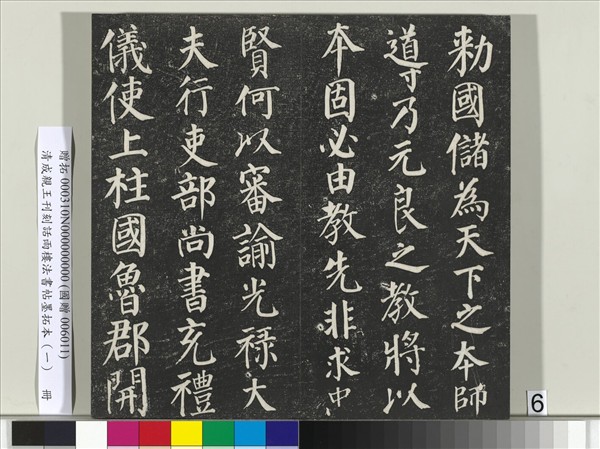 勑國儲為天下之本師
導乃元良之教將以
本固必由教先非求中
賢何以審諭光禄大
夫行吏部尚書充禮
儀使上柱國魯郡開
贈拓 000310N000000000 (國贈 006011)
清成親王刊刻詒晉齋法書帖墨拓本（一） 冊
6